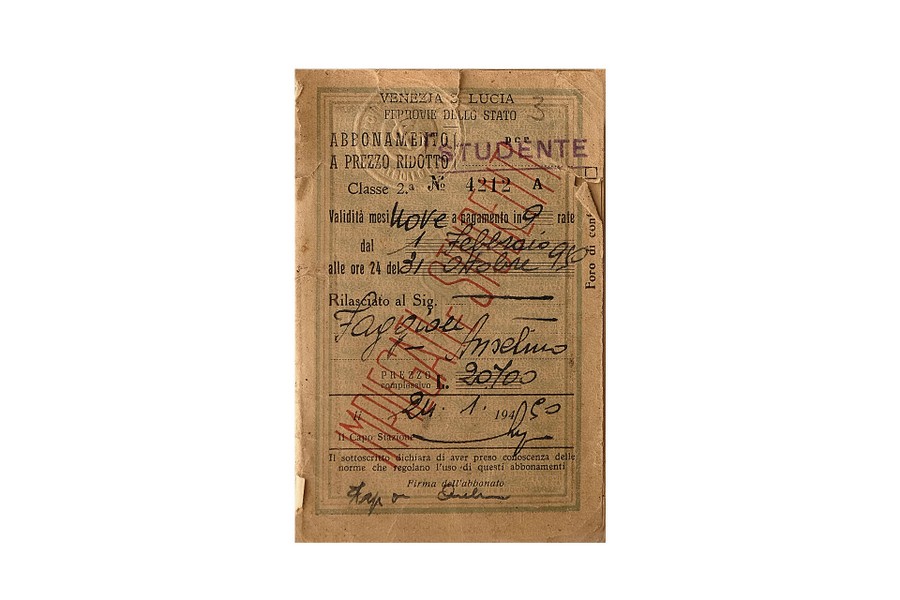 VENEZIA S. LUCIA
FERROVIE DELLO STATO
3
ABBONAMENTO per
A PREZZO RIDOTTO
STUDENTE
Classe 2.ª Nº 4212 A
Validità mesi nove a pagamento in 9 rate
dal 1 Febbraio 950
alle ore 24 del 31 Ottobre
Foro di cont
Rilasciato al Sig.
Anselmo
PREZZO complessivo L. 20700
Il 24. 1. 194 50
Il Capo Stazione
Il sottoscritto dichiara di aver preso conoscenza delle
norme che regolano l'uso di questi abbonamenti
Firma dell'abbonato